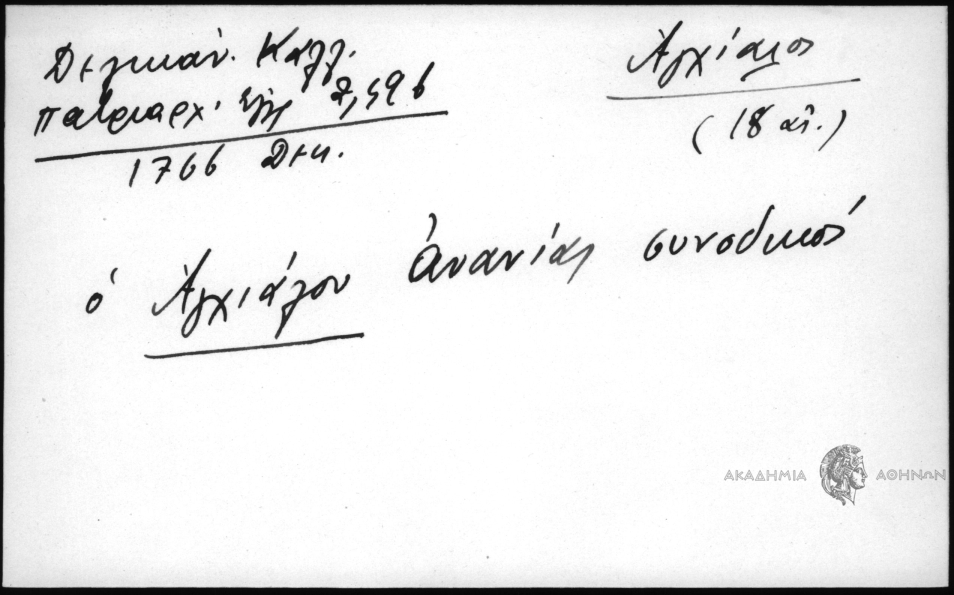 Δελικάν. Καλλ.
πατριαρχ. ἐγγρ 2,596
1766 Δεκ.
Ἀγχίαλος
(18 αἰ.)
ὁ Ἀγχιάλου Ἀνανίας συνοδικός
ΑΚΑΔΗΜΙΑ ΑΘΗΝΩΝ